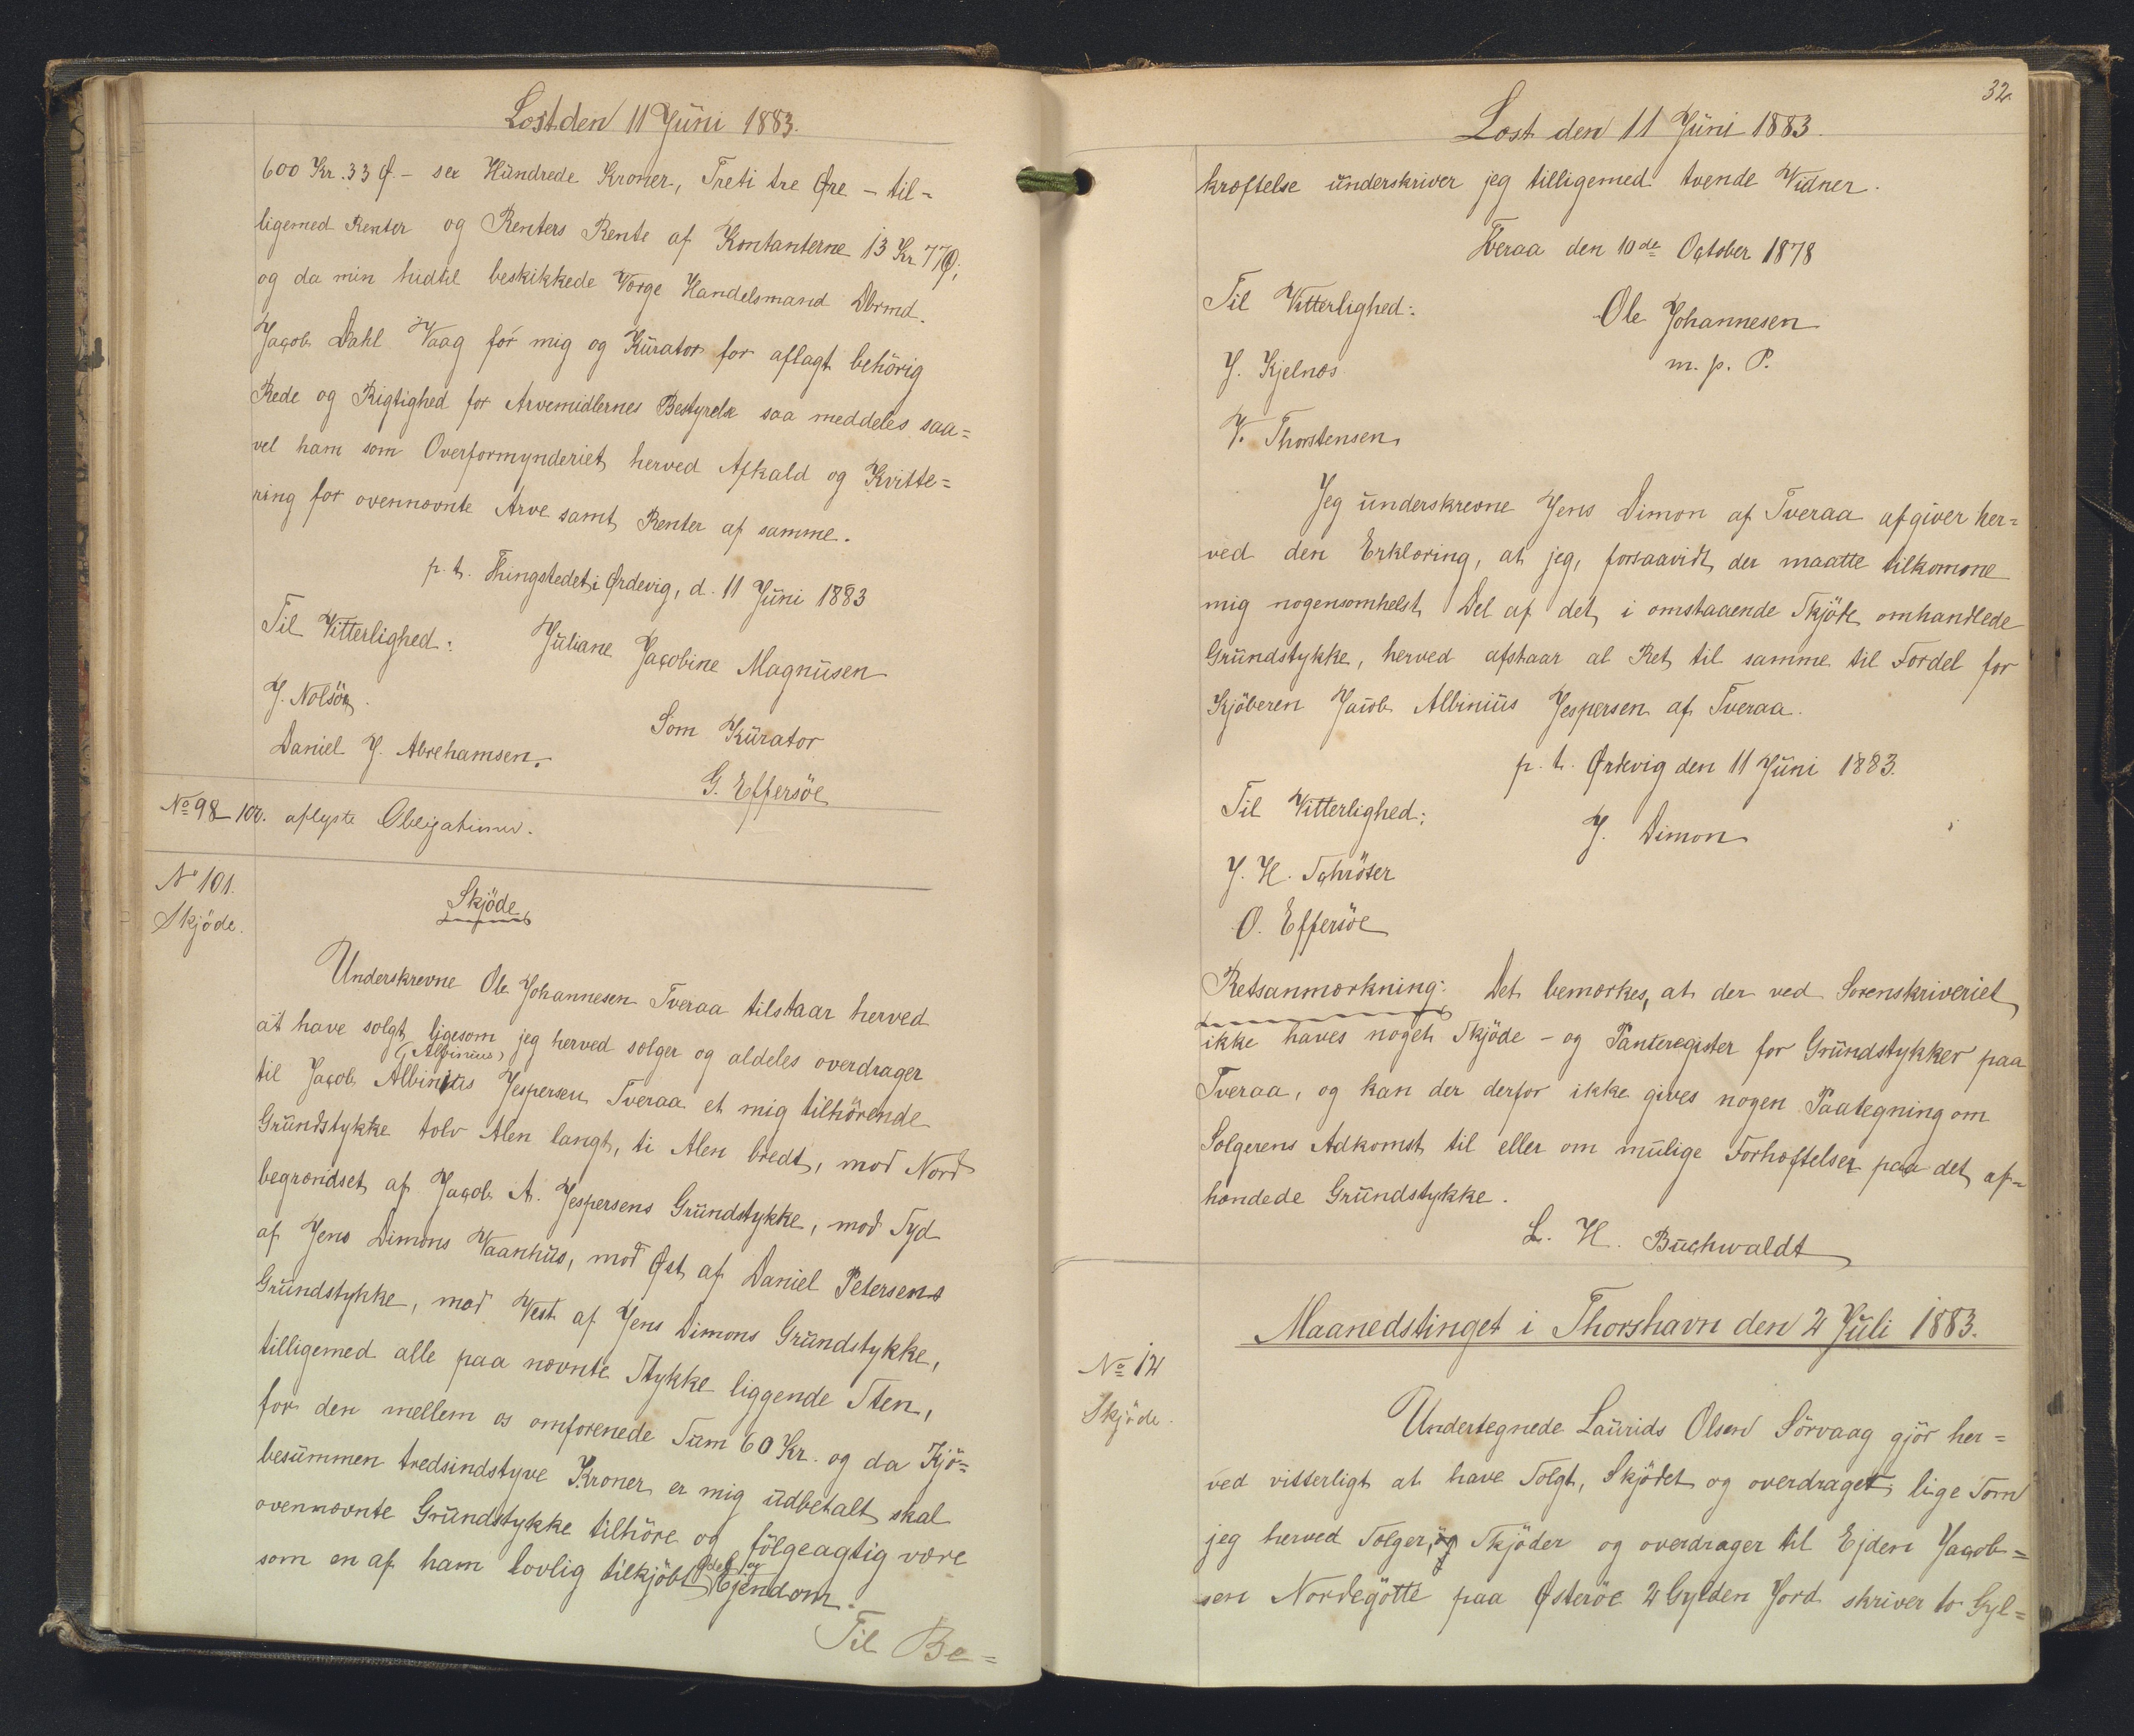 Læst den 11 Juni 1883.
600 Kr. 33 Ø. – sex Hundrede Kroner, Treti tre Øre – til=
ligemed Renter og Renters Rente af Kontanterne 13 Kr 77 Ø;
og da min hidtil beskikkede Værge Handelsmand Dbrmd.
Jacob Dahl Vaag for mig og Kurator for aflagt behörig
Rede og Rigtighed for Arvemidlernes Bestyrelse saa meddeles saa=
vel ham som Overformynderiet herved Afkald og Kvitte=
ring for ovennævnte Arve samt Renter af samme.
p. t. Thingstedet i Ørdevig, d. 11 Juni 1883
Til Vitterlighed: Juliane Jacobine Magnusen
J. Nolsöe.
Som Kurator
Daniel J. Abrehamsen.
G. Effersöe
No 98–100. aflyste Obligationer.
No 101.
Skjöde.
Skjöde
Underskrevne Ole Johannesen Tveraa tilstaar herved
at have solgt ligesom jeg herved sælger og aldeles overdrager
(Albinius)
til Jacob Albinius Jespersen Tveraa et mig tilhörende
Grundstykke tolv Alen langt, ti Alen bredt, mod Nord
begrændset af Jacob A. Jespersens Grundstykke, mod Syd
af Jens Dimons Vaanhus, mod Øst af Daniel Petersens
Grundstykke, mod Vest af Jens Dimons Grundstykke,
tilligemed alle paa nævnte Stykke liggende Sten,
for den mellem os omforenede Sum 60 Kr. og da Kjö=
besummen tredsindstyve Kroner er mig udbetalt skal
ovennævnte Grundstykke tilhöre og fölgeagtig være
som en af ham lovlig tilkjöbt Ejendom.
Til Be=
32.
Læst den 11 Juni 1883.
kræftelse underskriver jeg tilligemed tvende Vidner.
Tveraa den 10de October 1878
Til Vitterlighed: Ole Johannesen
J. Kjelnæs m. p. P.
V. Thorstensen
Jeg underskrevne Jens Dimon af Tveraa afgiver her=
ved den Erklæring, at jeg, forsaavidt der maatte tilkomme
mig nogensomhelst Del af det i omstaaende Skjöde omhandlede
Grundstykke, herved afstaar al Ret til samme til Fordel for
Kjöberen Jacob Albinius Jespersen af Tveraa.
p. t. Ørdevig den 11 Juni 1883.
Til Vitterlighed: J. Dimon
J. H. Schröter
O. Effersöe
Retsanmærkning: Det bemærkes, at der ved Sorenskriveriet
ikke haves noget Skjöde- og Panteregister for Grundstykker paa
Tveraa, og kan der derfor ikke gives nogen Paategning om
Sælgerens Adkomst til eller om mulige Forhæftelser paa det af=
hændede Grundstykke.
L. H. Buchwaldt
Maanedstinget i Thorshavn den 2 Juli 1883.
No 12
Skjöde.
Undertegnede Laurids Olsen Sörvaag gjör her=
ved vitterligt at have Solgt, Skjödet og overdraget, lige Som
jeg herved Sælger, og Skjöder og overdrager til Ejden Jacob=
sen Nordegötte paa Østeröe 2 Gylden Jord skriver to Gyl=